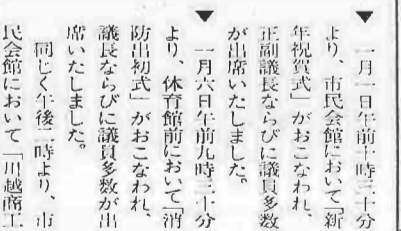 ▼ 一月一日午前十時三十分
より、市民会館において「新
年祝賀式」がおこなわれ、
正副議長ならびに議員多数
が出席いたしました。
▼ 一月六日午前九時三十分
より、体育館前において「消
防出初式」がおこなわれ、
議長ならびに議員多数が出
席いたしました。
同じく午後二時より、市
民会館において「川越商工